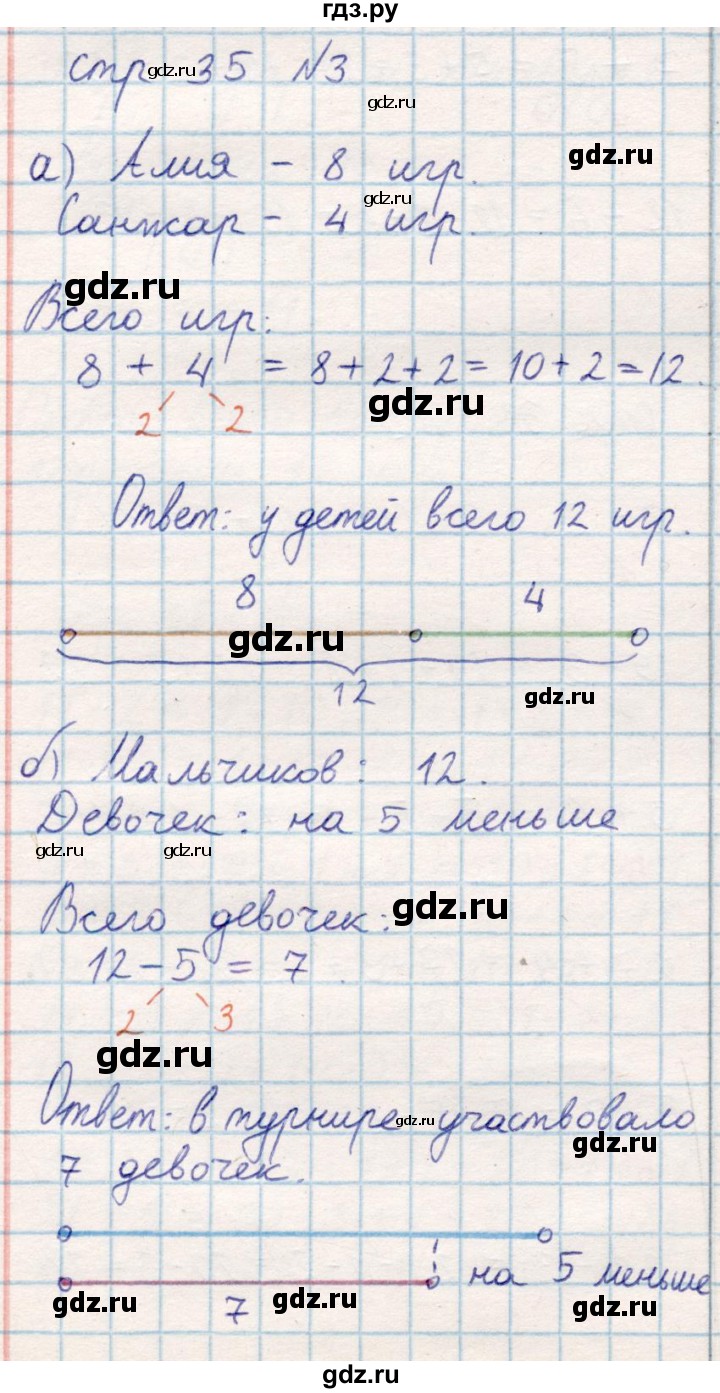 гдз.ру
стр 35 №3
gdz.ru
gdz.ru
а) Алия - 8 игр.
gdz.ru
gdz.ru
Санжар - 4 игр.
gdz.ru
Всего игр:
8 + 4 = 8+2+2 = 10+2 = 12.
gdz.ru
2 2
Ответ: у детей всего 12 игр.
8 4
gdz.ru
12
gdz.ru
б) Мальчиков: 12.
Девочек: на 5 меньше
gdz.ru gdz.ru
Всего девочек:
gdz.ru
12 - 5 = 7
2 3
gdz.ru
Ответ: в турнире участвовало
gdz.ru
gdz.ru
7 девочек.
на 5 меньше
7
gdz.ru gdz.ru gdz.ru
gdz.ru